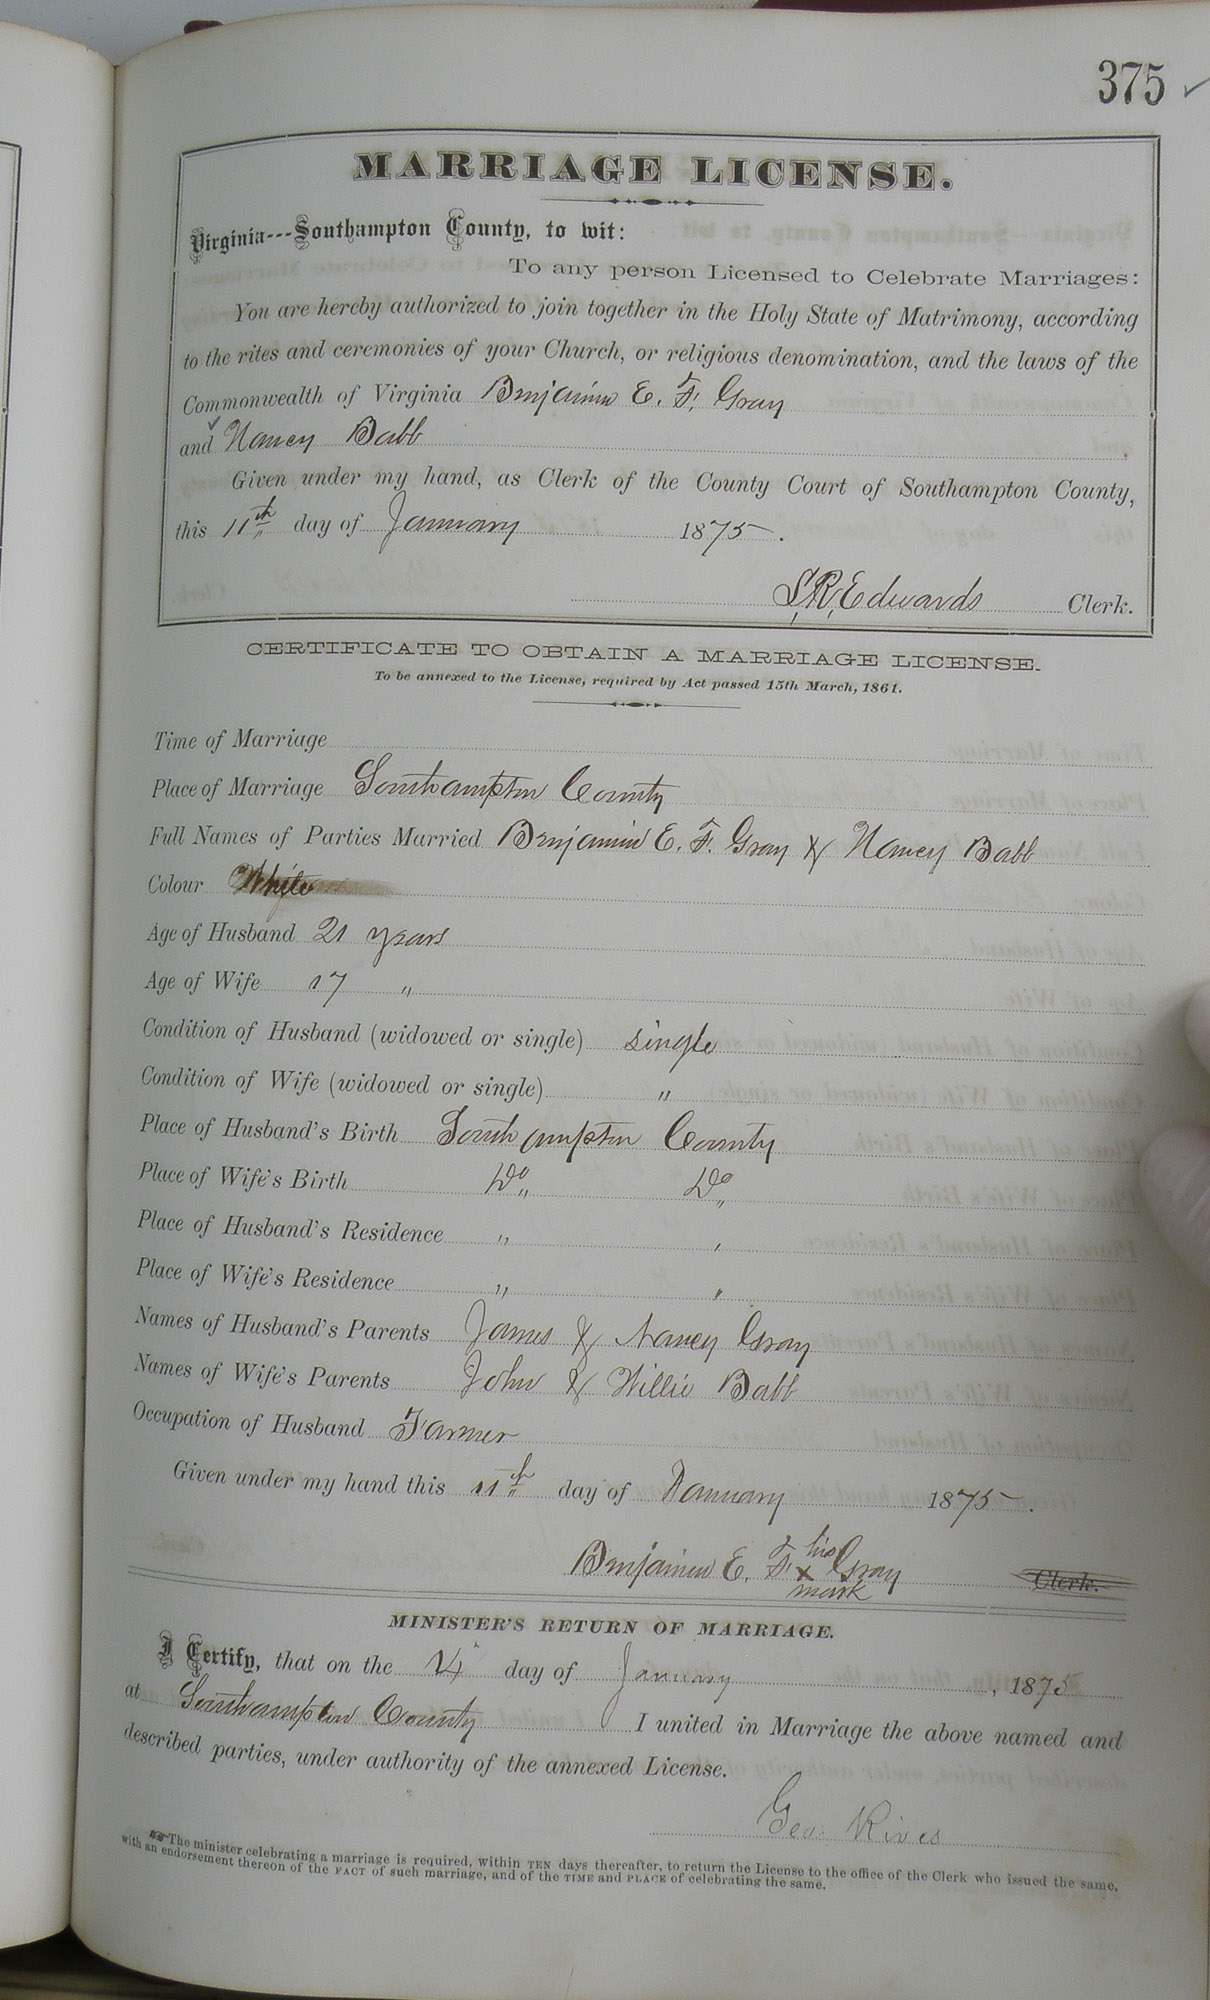 375
MARRIAGE LICENSE.
Virginia---Southampton County, to wit:
To any person Licensed to Celebrate Marriages:
You are hereby authorized to join together in the Holy State of Matrimony, according
to the rites and ceremonies of your Church, or religious denomination, and the laws of the
Commonwealth of Virginia Benjamin E. F. Gray
and Nancy Babb
Given under my hand, as Clerk of the County Court of Southampton County,
this 11th day of January 1875.
S,R,Edwards Clerk.
CERTIFICATE TO OBTAIN A MARRIAGE LICENSE.
To be annexed to the License, required by Act passed 15th March, 1861.
Time of Marriage
Place of Marriage Southampton County
Full Names of Parties Married Benjamin E. F. Gray & Nancy Babb
Colour White
Age of Husband 21 years
Age of Wife 17 "
Condition of Husband (widowed or single) single
Condition of Wife (widowed or single) "
Place of Husband's Birth Southampton County
Place of Wife's Birth Do Do
Place of Husband's Residence " "
Place of Wife's Residence " "
Names of Husband's Parents James & Nancy Gray
Names of Wife's Parents John & Willie Babb
Occupation of Husband Farmer
Given under my hand this 11th day of January 1875.
his
Benjamin E. F. x Gray Clerk.
mark
MINISTER'S RETURN OF MARRIAGE.
I Certify, that on the 14 day of January, 1875
at Southampton County I united in Marriage the above named and
described parties, under authority of the annexed License.
Geo. Rives
The minister celebrating a marriage is required, within TEN days thereafter, to return the License to the office of the Clerk who issued the same,
with an endorsement thereon of the FACT of such marriage, and of the TIME and PLACE of celebrating the same.